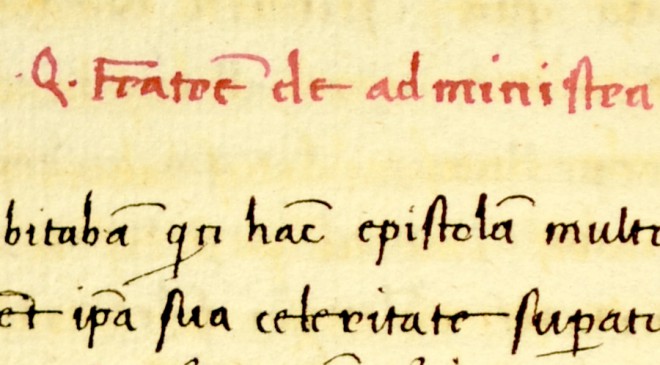 ·Q· Fratrē de administra
bitabā qn hāc epistolā mult
ēt ipā sua celeritate suꝑatu